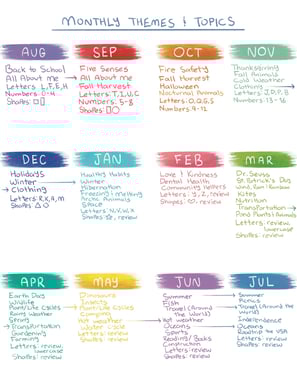 MONTHLY THEMES & TOPICS
AUG
Back to School
All About Me
Letters: L, F, E, H
Numbers: 0-4
Shapes:
SEP
Five Senses
All About Me
Fall Harvest
Letters: T, I, U, C
Numbers: 5-8
Shapes:
OCT
Fire Safety
Fall Harvest
Halloween
Nocturnal Animals
Letters: O, Q, G, S
Numbers: 9-12
NOV
Thanksgiving
Fall Animals
Cold Weather
Clothing
Letters: J, D, P, B
Numbers: 13-16
DEC
Holidays
Winter
Clothing
Letters: R, K, A, M
Shapes:
JAN
Healthy Habits
Winter
Hibernation
Freezing/Melting
Arctic Animals
Space
Letters: N, V, W, X
Shapes: review
FEB
Love & Kindness
Dental Health
Community Helpers
Letters: Y, Z, review
Shapes: review
MAR
Dr. Seuss
St. Patrick's Day
Wind, Rain, Rainbows
Kites
Nutrition
Transportation
Pond Plants/Animals
Letters: review,
lowercase
Shapes: review
APR
Earth Day
Wildlife
Plant Life Cycles
Rainy Weather
Spring
Transportation
Gardening
Farming
Letters: review
lowercase
Shapes: review
MAY
Dinosaurs
Insects
Plant Life Cycles
Camping
Hot Weather
Water Cycle
Letters: review
Shapes: review
JUN
Summer
Fish
Travel (Around
the World)
Hot Weather
Oceans
Sports
Reading/Books
Construction
Letters: review
Shapes: review
JUL
Summer
Picnics
Travel (Around the
World)
Independence
Oceans
Roadtrip the USA
Letters: review
Shapes: review